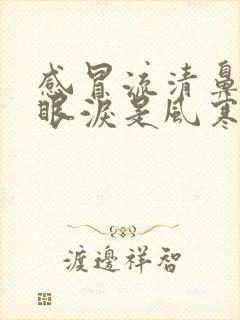 感冒流清鼻
眼淚是風寒
渡邊祥智